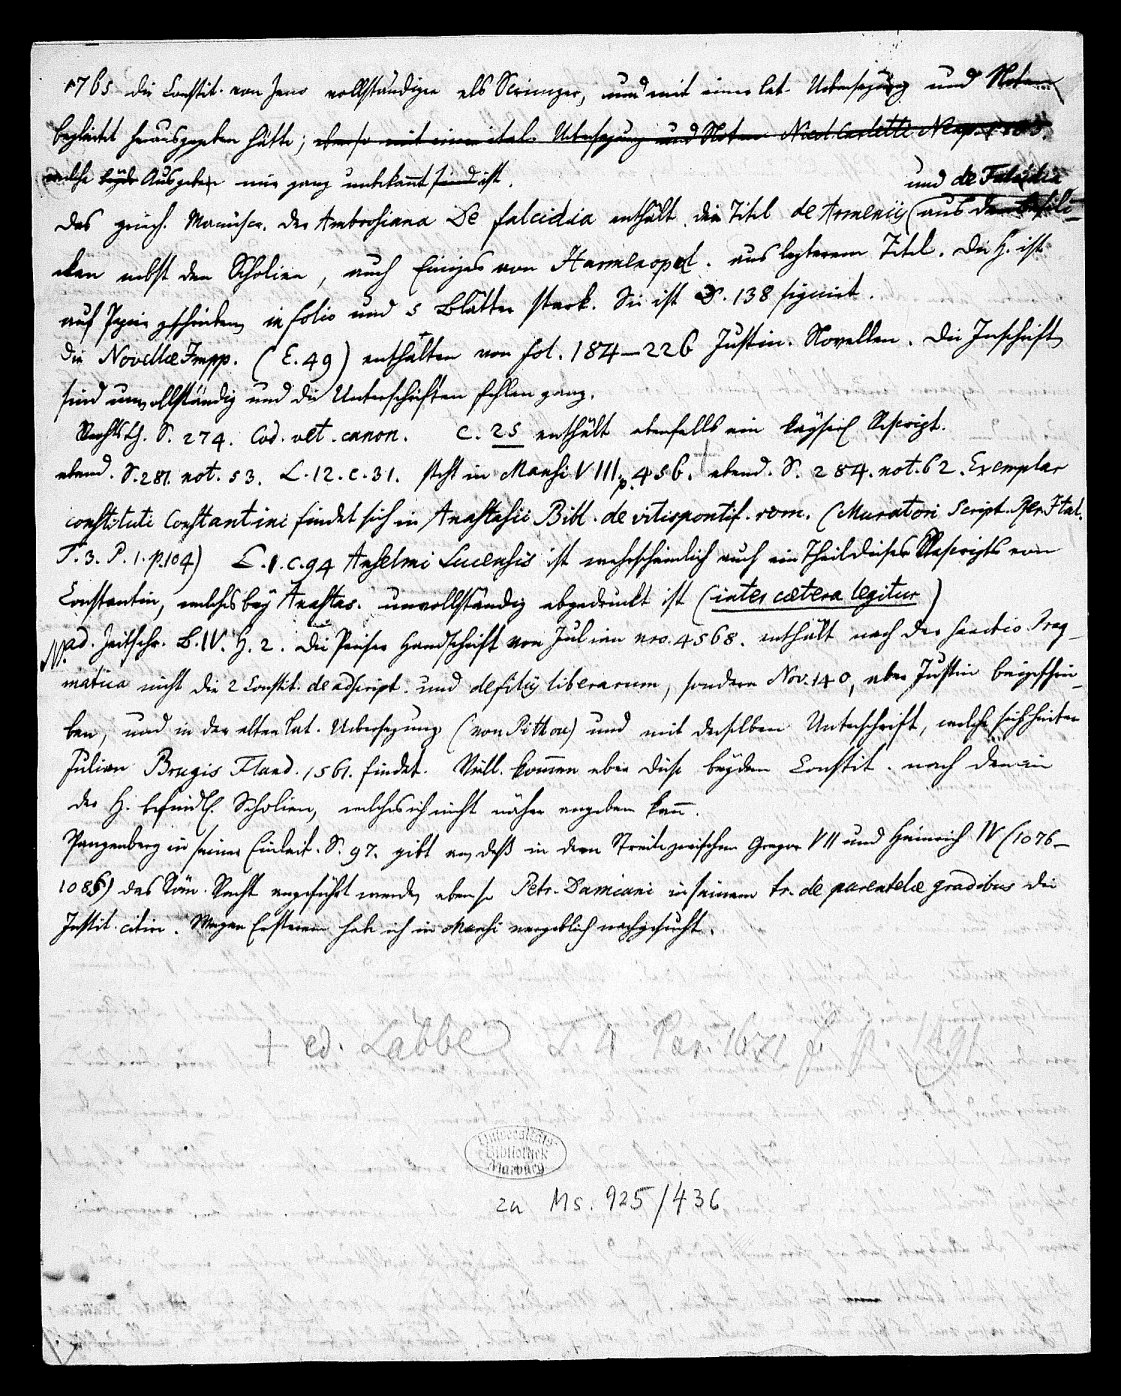 1765 die Constit. von Zeno vollständiger als Scrimger, und mit einer lat. Uebersezung und Noten
begleitet herausgegeben hätte; ebenso mit einer ital. Uebersezung und Noten Nicol. Carletti Neap. 1803.
welche beyde Ausgaben mir ganz unbekannt sind ist.
und de Falcidia
Das griech. Manuscr. der Ambrosiana De falcidia enthält die Titel de Armeniis (aus den Basili-
ken nebst den Scholien, auch Einiges von Harmenopol. aus lezterem Titel. Die H. ist
auf Papier geschrieben in folio und 5 Blätter stark. Sie ist D. 138 signirt.
Die Novellae Impp. (E. 49) enthalten von fol. 184–226 Justin. Novellen. Die Inschriften
sind unvollständig und die Unterschriften fehlen ganz.
RechtsG. S. 274. Cod. vet. canon. C. 25 enthält ebenfalls ein kayserl. Rescript.
ebend. S. 281. not. 53. L. 12. c. 31. steht in Mansi VIII p. 456. + ebend. S. 284. not. 62. Exemplar
constituti Constantini findet sich in Anastasii Bibl. de vitis pontif. rom. (Muratori Script. Rer. Ital.
T. 3. P. 1. p. 104) L. 1. c. 94 Anselmi Lucensis ist wahrscheinlich auch ein Theil dieses Rescripts von
Constantin, welches bey Anastas. unvollständig abgedruckt ist (inter caetera legitur)
ad. Zeitschr. B. IV. H. 2. Die Pariser Handschrift von Julian nro. 4568. enthält nach der Sanctio Prag-
matica nicht die 2 Constit. de adscript. und de filiis liberarum, sondern Nov. 140, aber Justin beigeschrie-
ben, und in der alten lat. Uebersezung (von Pithou) und mit derselben Unterschrift, welche sich hinter
Julian Brugis Fland. 1561. findet. Vull. kommen aber diese beyden Constit. nach den in
der H. befindl. Scholien, welches ich nicht näher angeben kann.
Panzenberg in seiner Einleit. S. 97. gibt an, daß in dem Streite zwischen Gregor VII und Heinrich IV (1076–
1085) das Röm. Recht angeführt werde, ebenso Petr. Damiani in seinem tr. de parentelae gradibus die
Instit. citire. Wegen Ersterem habe ich in Mansi vergeblich nachgesucht.
+ ed. Labbe T. 4 Par. 1671 f. p. 1491
Universitäts-
Bibliothek
Marburg
2a Ms. 925/436